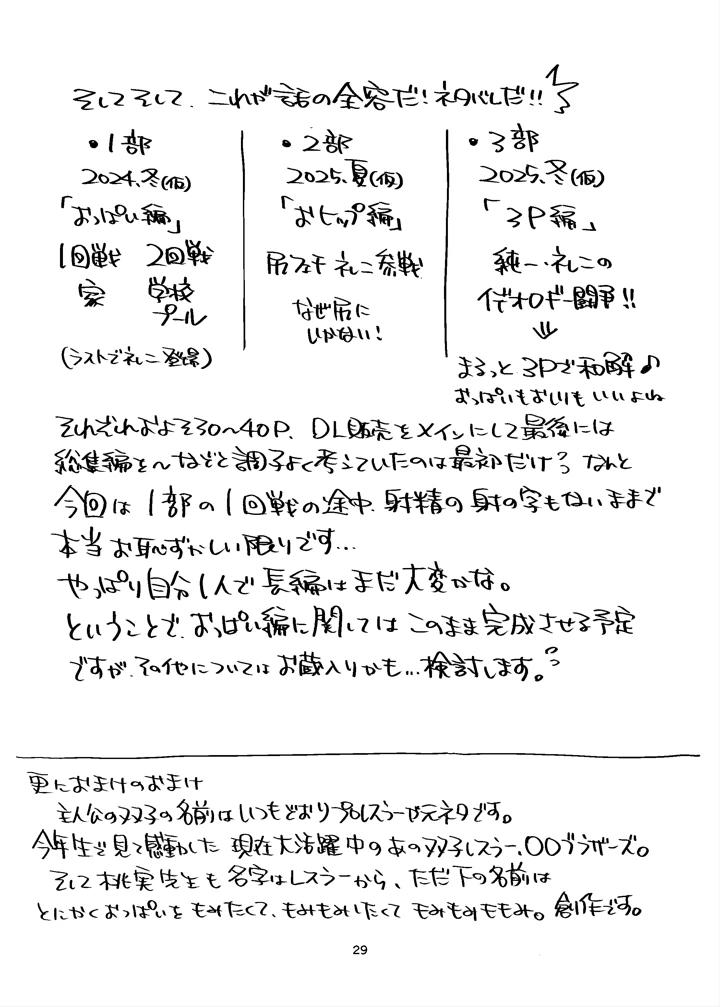 そしてそして、これが話の全容だ！ネタバレだ！！
・1部
2024、冬(仮)
「おっぱい編」
1回戦 2回戦
家 学校
プール
(ラストでネレニ登場)
・2部
2025、夏(仮)
「おヒップ編」
尻フェチ ネレニ参戦
なぜ尻に
いかない！
・3部
2025、冬(仮)
「3P編」
純一・ネレニの
イデオロギー闘争！！
⇓
まるっと3Pで和解♪
おっぱいもおしりもいいよね
それぞれおよそ30〜40P、DL販売をメインにして最後には
総集編を〜などと調子よく考えていたのは最初だけ？なんと
今回は1部の1回戦の途中、射精の射の字もないままで
本当お恥ずかしい限りです…
やっぱり自分1人で長編はまだ大変かな。
ということで、おっぱい編に関してはこのまま完成させる予定
ですが、その他についてはお蔵入りかも…検討します。
更におまけのおまけ
主人公の双子の名前はいつもどおりプロレスラーが元ネタです。
今年生で見て感動した 現在大活躍中のあの双子レスラー、〇〇ブラザーズ。
そして桃実先生も名字はレスラーから、ただ下の名前は
とにかくおっぱいをもみたくて、もみもみいたくて もみもみももみ。創作です。
29